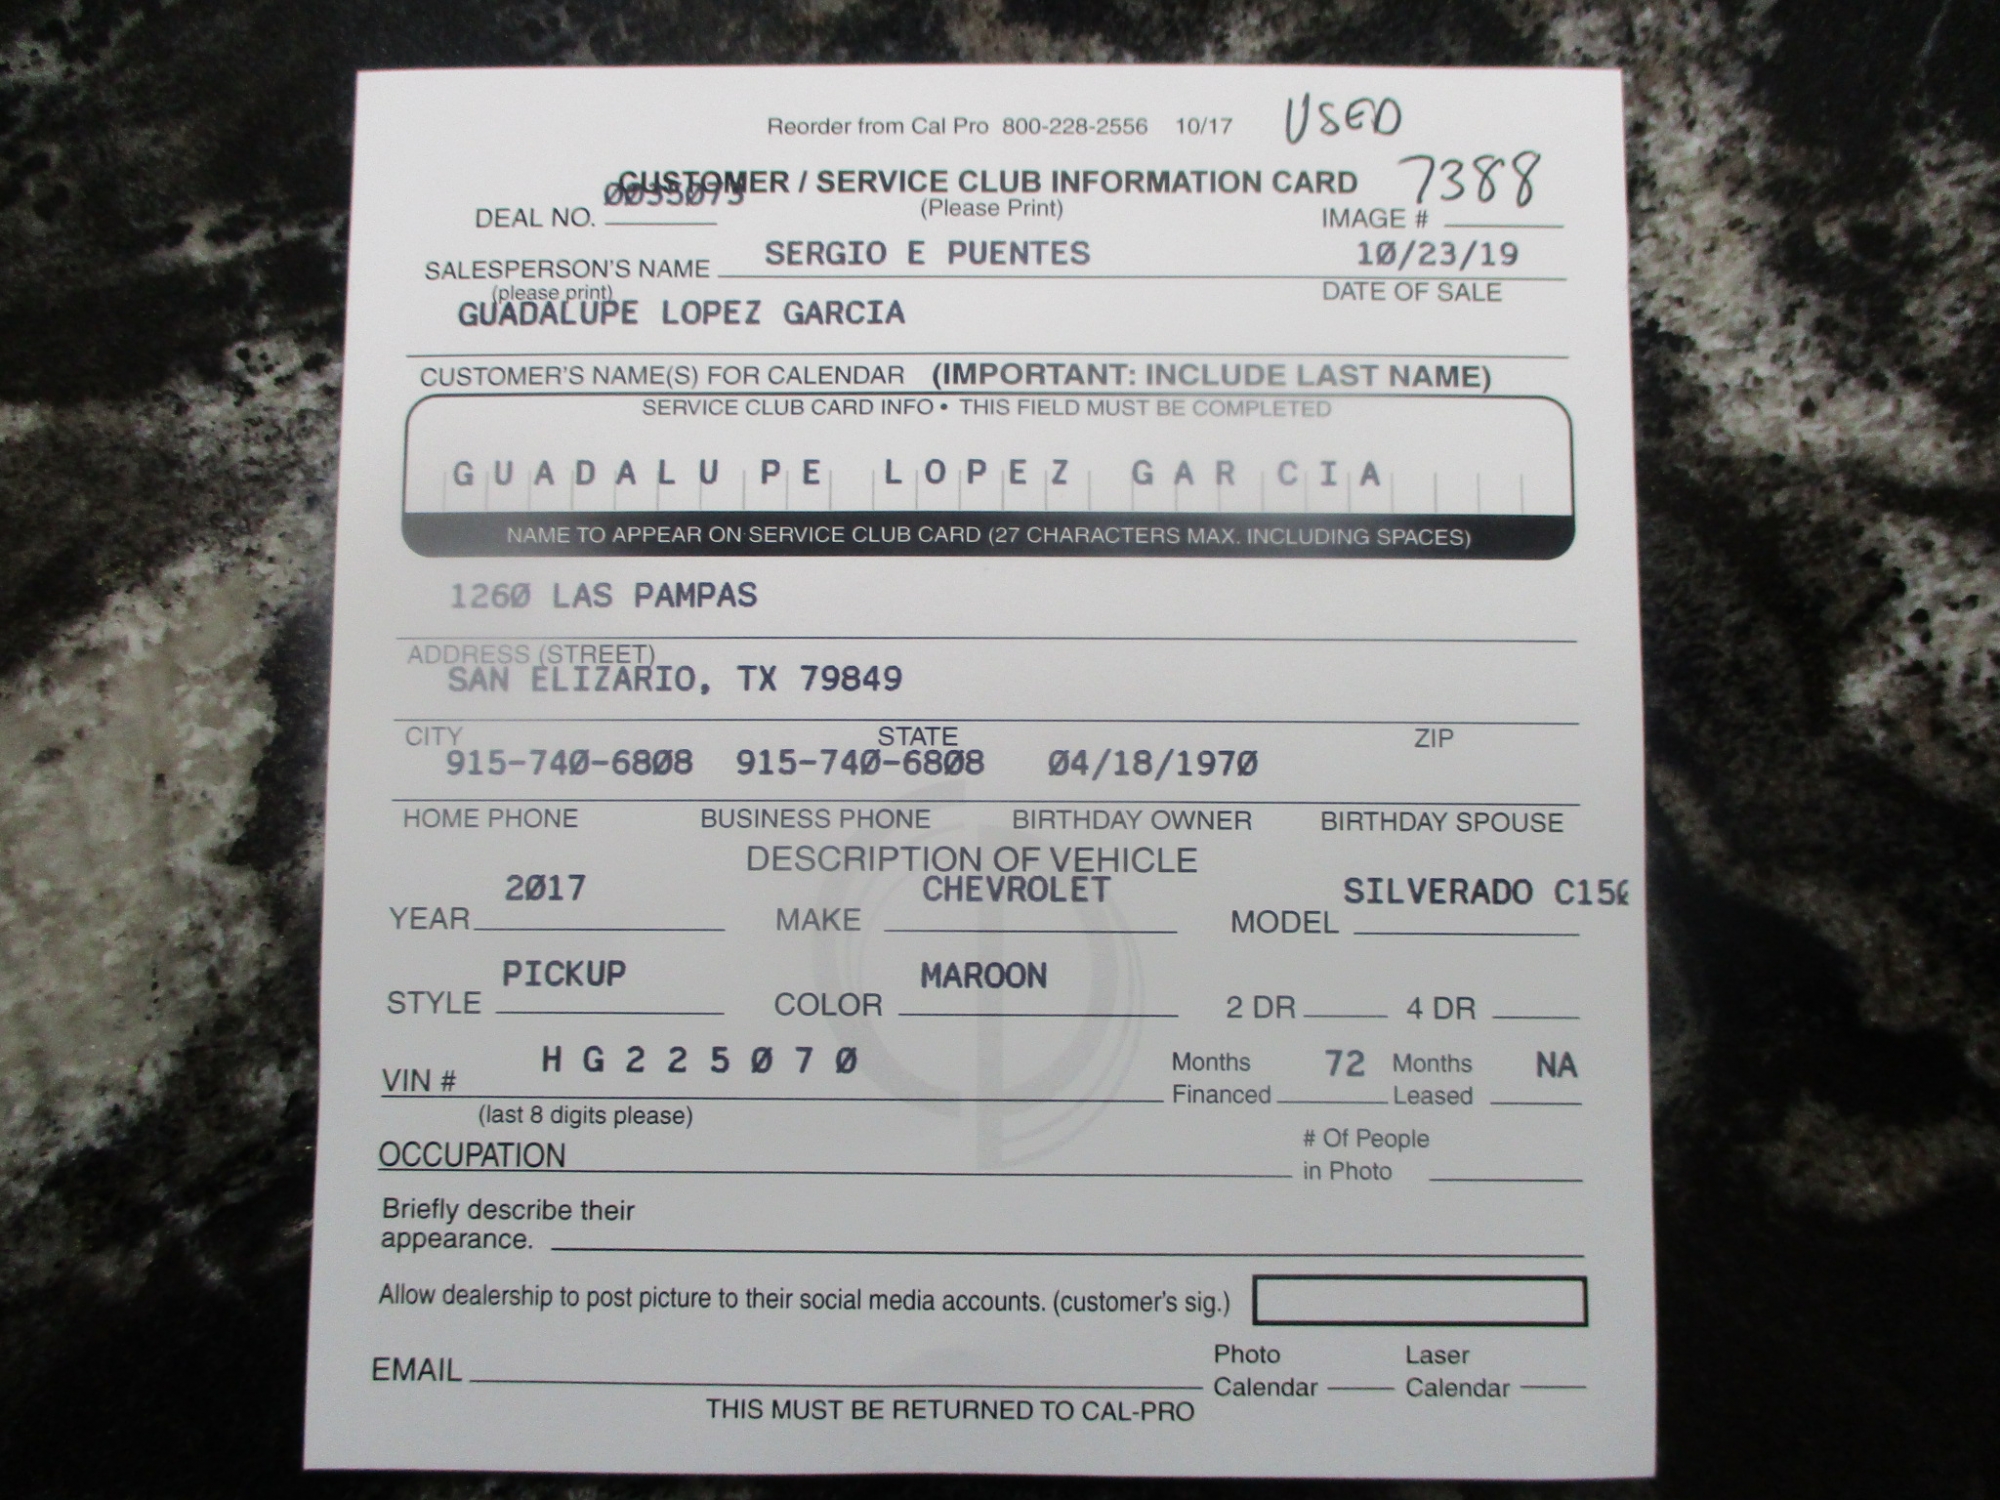 Reorder from Cal Pro 800-228-2556 10/17 USED
CUSTOMER / SERVICE CLUB INFORMATION CARD 7388
DEAL NO. 0035073 (Please Print) IMAGE #
SALESPERSON'S NAME SERGIO E PUENTES 10/23/19
(please print) DATE OF SALE
GUADALUPE LOPEZ GARCIA
CUSTOMER'S NAME(S) FOR CALENDAR (IMPORTANT: INCLUDE LAST NAME)
SERVICE CLUB CARD INFO • THIS FIELD MUST BE COMPLETED
GUADALUPE LOPEZ GARCIA
NAME TO APPEAR ON SERVICE CLUB CARD (27 CHARACTERS MAX. INCLUDING SPACES)
1260 LAS PAMPAS
ADDRESS (STREET)
SAN ELIZARIO, TX 79849
CITY STATE ZIP
915-740-6808 915-740-6808 04/18/1970
HOME PHONE BUSINESS PHONE BIRTHDAY OWNER BIRTHDAY SPOUSE
DESCRIPTION OF VEHICLE
YEAR 2017 MAKE CHEVROLET MODEL SILVERADO
STYLE PICKUP COLOR MAROON 2 DR 4 DR
VIN # HG225070 Months 72 Months NA
Financed Leased
(last 8 digits please)
OCCUPATION # Of People
in Photo
Briefly describe their
appearance.
Allow dealership to post picture to their social media accounts. (customer's sig.)
EMAIL Photo Laser
Calendar Calendar
THIS MUST BE RETURNED TO CAL-PRO